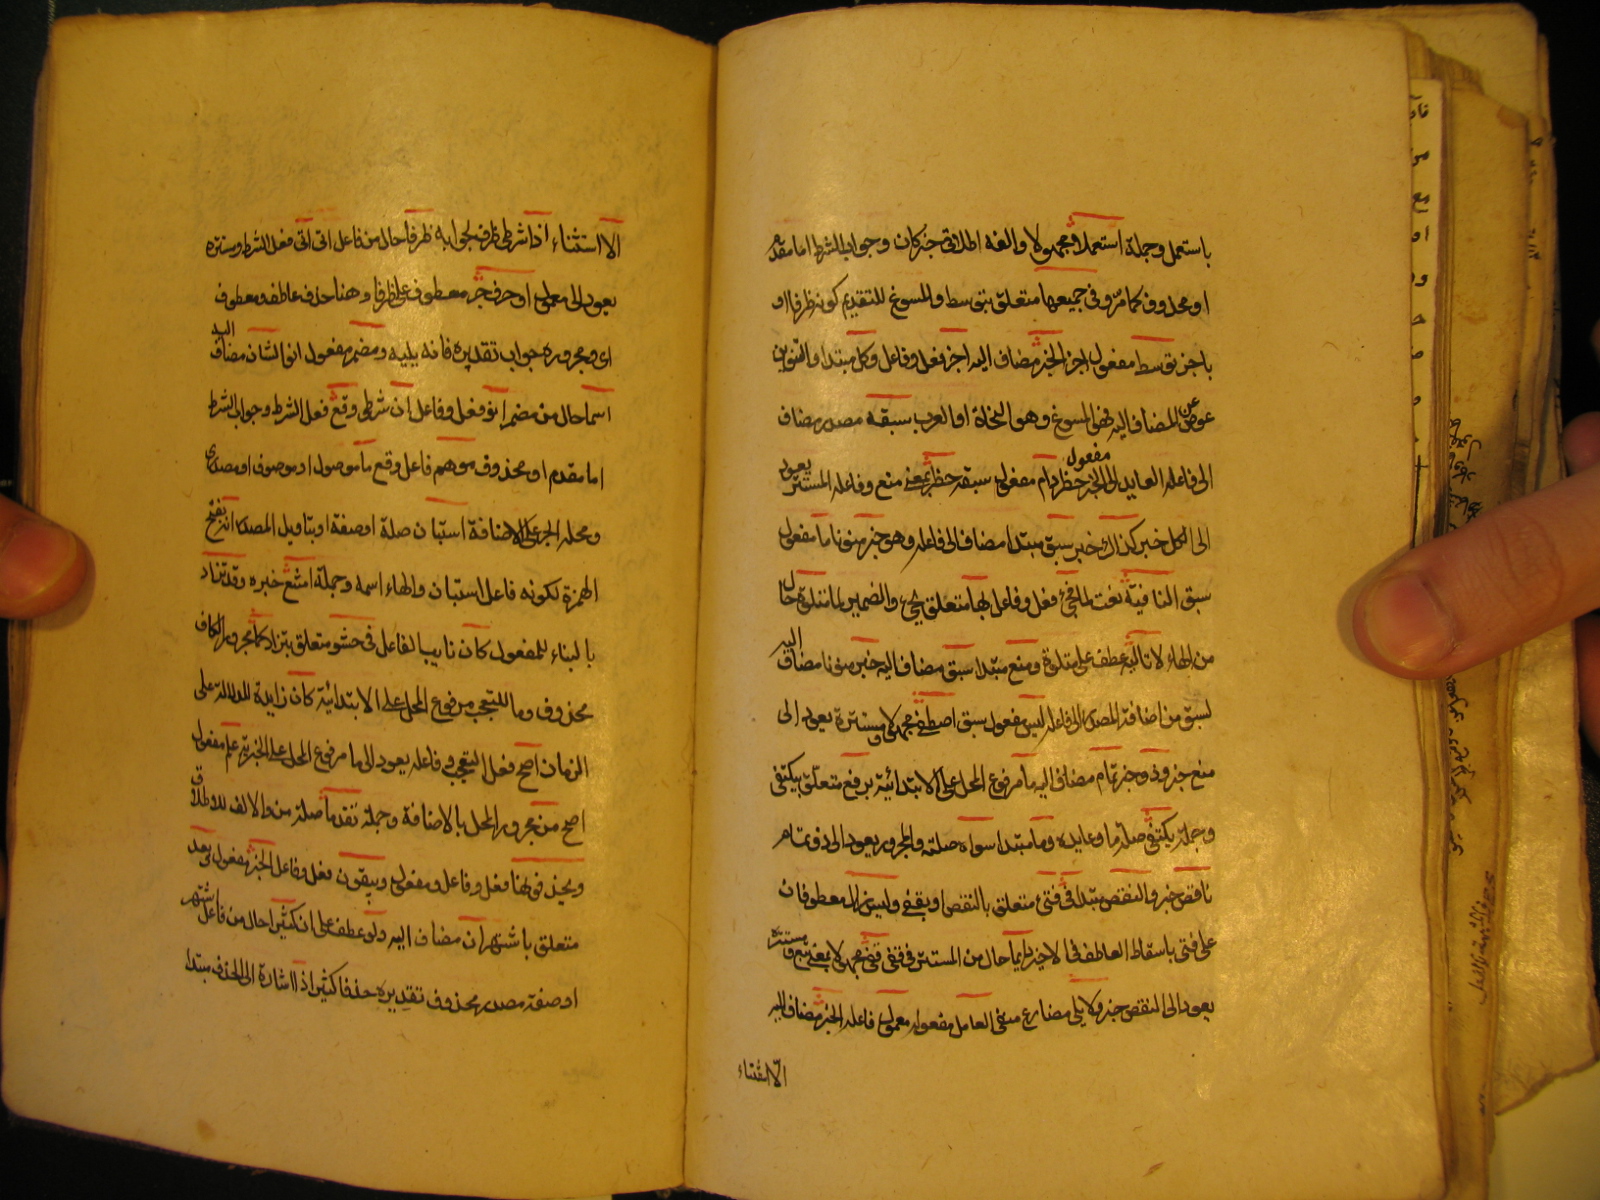 باستعمل وجملة استعملا ومجهولا والفه اطلاقى خبر كان وجواب الشرط اما مقدم
او محذوف كما مرّ وفى جميعها متعلق بتوسط والمسوغ للتقديم كونه ظرفا او
باجز توسط مفعول اجز الخبر مضاف اليه اجز فعل وفاعل وكل مبتدا والتنوين
عوض عن المضاف اليه فهو المسوغ وهو النحاة او العرب سبقه مصدر مضاف
الى فاعله العايد الى الخبر حظر دام مفعول مفعول سبقه حظر بمعنى منع وفاعله المستتر يعود
الى الكل خبر كذاك خبر سبق مبتدا مضاف الى فاعله وهو خبر منونا ما مفعول
سبق النافية نعت لما فجئ فعل وفاعل بها متعلق بجئ والضمير لما متلوة حال
من الهاء لا تالية عطف على متلوة ومنع مبتدا سبق مضاف اليه خبر منونا مضاف اليه
لسبق من اضافة المصدر الى فاعله ليس مفعول سبق اصطفى مجهولا ومستتره يعود الى
منع خبر وذو خبر تمام مضاف اليه ما مرفوع المحل على الابتدائية برفع متعلق بيكتفى
وجملة يكتفى صلة ما وعايده وما مبتدا سواه صلته والمجرور يعود الى ذو تمام
ناقص خبر والنقص مبتدا فى فتئ متعلق بالنقص او بقفى وليس زال معطوفان
على فتئ باسقاط العاطف فى الاخير دايما حال من المستتر فى قفى قفى مجهولا بمعنى تبع ومستتره
يعود الى النقص خبر ولا يلى مضارع منفى العامل مفعوله معمول فاعله الخبر مضاف اليه
الا استثناء
الا استثناء اذا شرطى ظرف لجوابه ظرفا حال من فاعل اتى اتى فعل الشرط ومستتره
يعود الى معمول او حرف جر معطوف على ظرفا وهنا حذف عاطف ومعطوف
اى ومجروره جواب تقديره فانه يليه ومضمر مفعول انو الشان مضاف اليه
اسما حال من مضمر انو فعل وفاعل ان شرطى وقع فعل الشرط وجواب الشرط
اما مقدم او محذوف موهم فاعل وقع ما موصول او موصوف او مصدرى
ومحله الجر على الاضافة استبان صلة او صفة او بتاويل المصدر انه بفتح
الهمزة لكونه فاعل استبان والهاء اسمه وجملة امتنع خبره وقد تزاد
بالبناء للمفعول كان نايب الفاعل فى حشو متعلق بتزاد كما مجرور الكاف
محذوف وما للتعجب مرفوع المحل على الابتدائية كان زايدة للدلالة على
الزمان اصح فعل التعجب وفاعله يعود الى ما مرفوع المحل على الخبرية علم مفعول
اصح من مجرور المحل بالاضافة وجملة تقدما صلة من والالف للاطلاق
ويحذفونها فعل وفاعل ومفعول ويبقون فعل وفاعل الخبر مفعول وبعد
متعلق باشتهر ان مضاف اليه ولو عطف على ان كثيرا حال من فاعل اشتهر
او صفة مصدر محذوف تقديره حذفا كثيرا ذا اشارة الى الحذف مبتدا